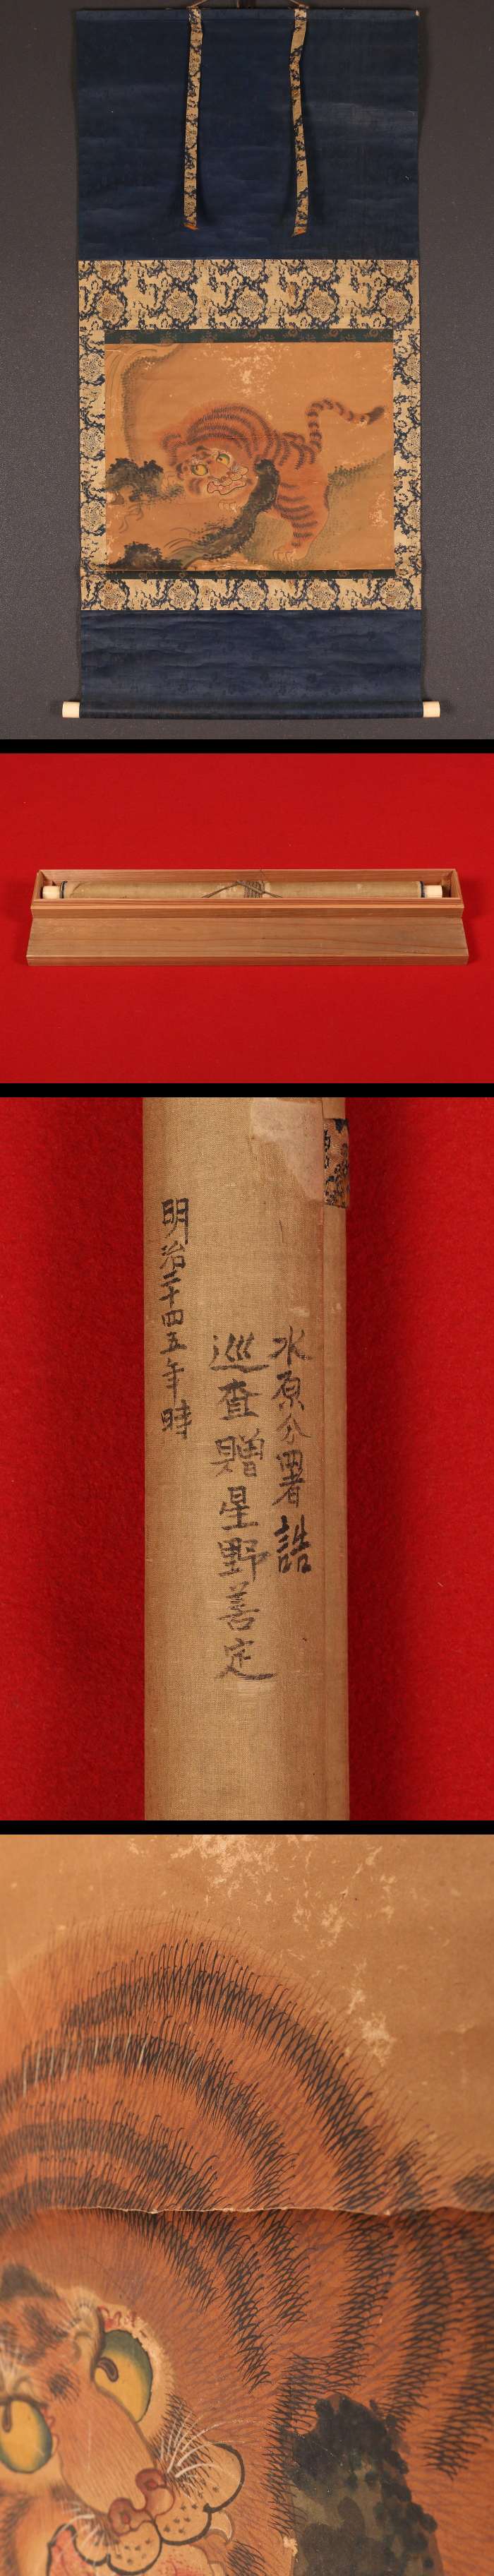 水原分署誥
巡査贈星野善定
明治二十四五年時